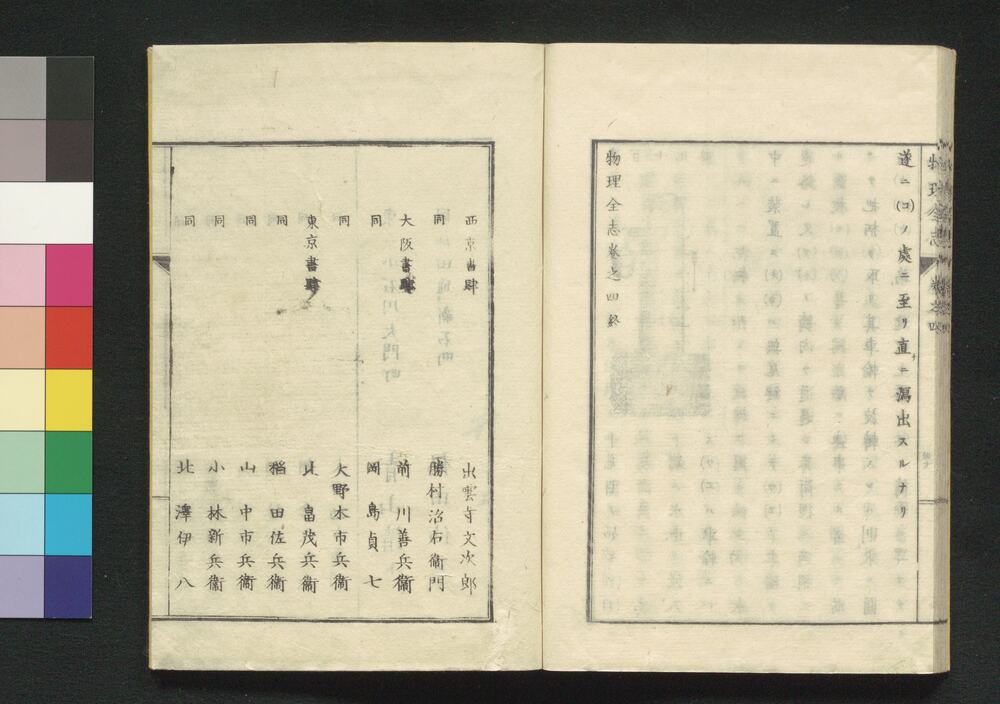 物理全志 卷之四
遂ニ(コ)ノ處ニ至リ直ニ瀉出スルナリ
物理全志卷之四終
西京書肆 出雲寺文次郎
同 勝村治右衞門
大阪書肆 前川善兵衞
同 岡島貞七
同 大野木市兵衞
東京書肆 北畠茂兵衞
同 稻田佐兵衞
同 山中市兵衞
同 小林新兵衞
同 北澤伊八